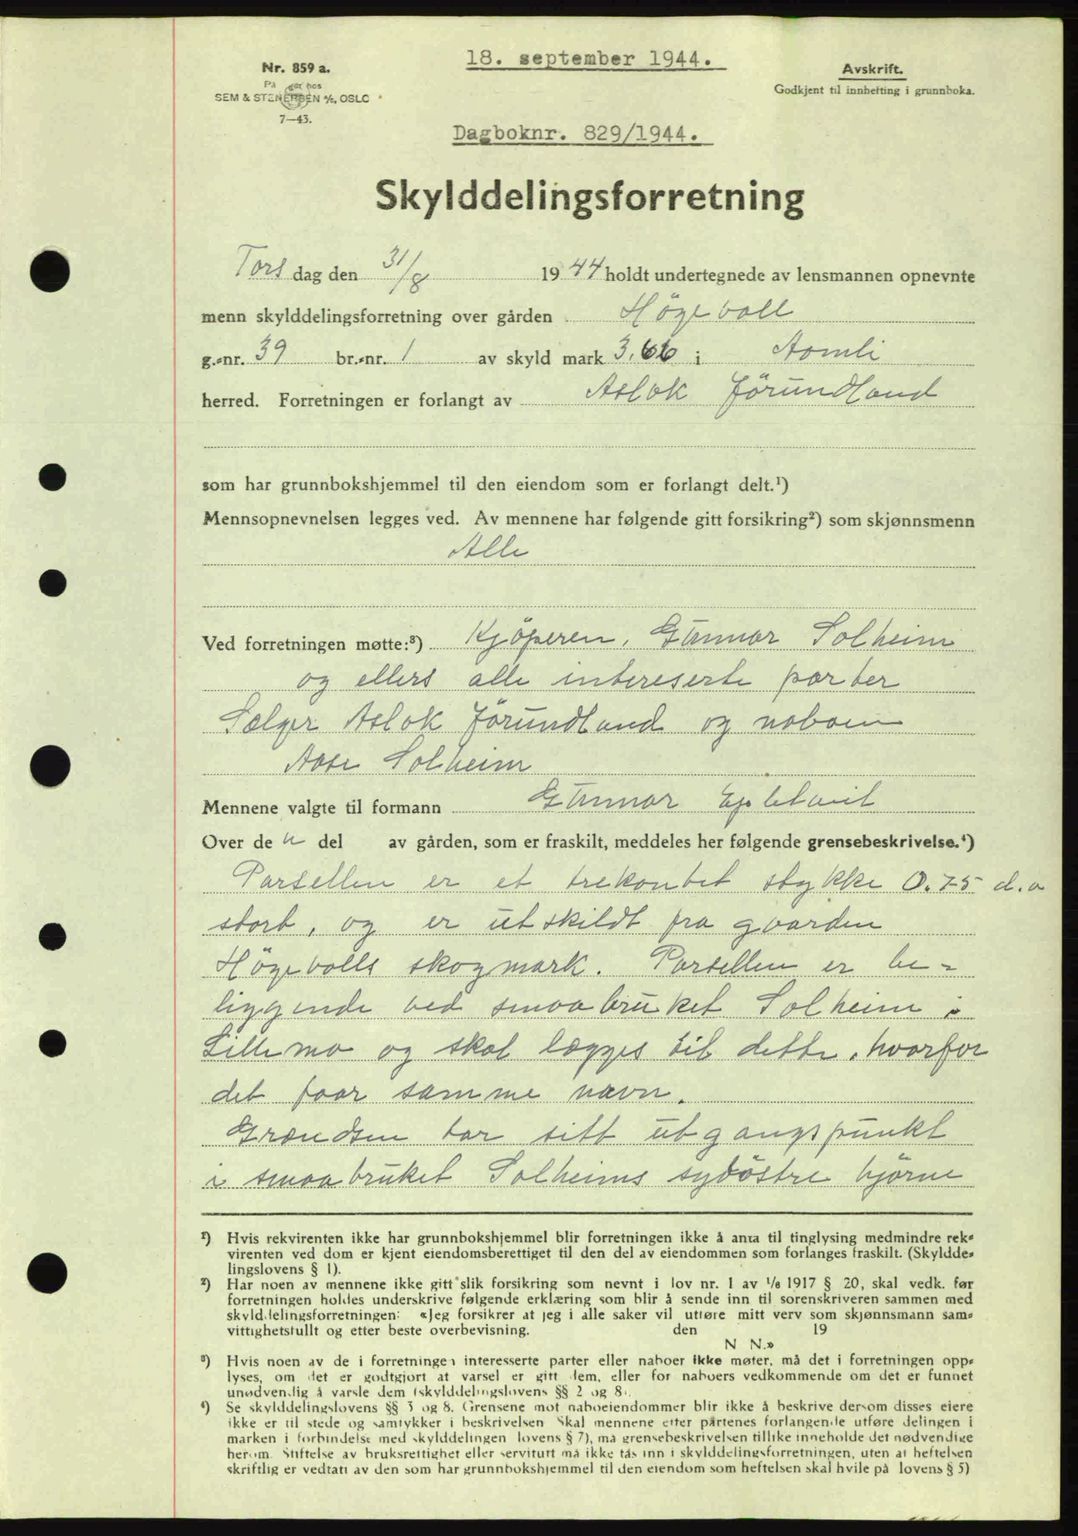 Nr. 859 a.
18. september 1944.
Avskrift.
Godkjent til innhefting i grunnboka.
SEM & STENERSEN A/S, OSLO
7—43.
Dagboknr. 829/1944.
Skylddelingsforretning
Torsdag den 31/8 1944 holdt undertegnede av lensmannen opnevnte
menn skylddelingsforretning over gården Högevoll
g.-nr. 39 br.-nr. 1 av skyld mark 3,66 i Aamli
herred. Forretningen er forlangt av Aslak Jörundland
som har grunnbokshjemmel til den eiendom som er forlangt delt.¹)
Mennsopnevnelsen legges ved. Av mennene har følgende gitt forsikring²) som skjønnsmenn
Alle
Ved forretningen møtte:³) Kjöperen, Gunnar Solheim
og ellers alle intereserte parter
Sælger Aslak Jörundland og naboen
Aase Solheim
Mennene valgte til formann Gunnar Epletveit
Over den del av gården, som er fraskilt, meddeles her følgende grensebeskrivelse.⁴)
Parsellen er et trekantet stykke 0.75 d.a
stort, og er utskildt fra gaarden
Högevolls skogmark. Parsellen er be-
liggende ved smaabruket Solheim i
Lillemo og skal lægges til dette, hvorfor
det faar samme navn.
Grændsen tar sitt utgangspunkt
i smaabruket Solheims sydöstre hjörne
¹) Hvis rekvirenten ikke har grunnbokshjemmel blir forretningen ikke å anta til tinglysing medmindre rek-
virenten ved dom er kjent eiendomsberettiget til den del av eiendommen som forlanges fraskilt. (Skyldde-
lingslovens § 1).
²) Har noen av mennene ikke gitt slik forsikring som nevnt i lov nr. 1 av 1/6 1917 § 20, skal vedk. før
forretningen holdes underskrive følgende erklæring som blir å sende inn til sorenskriveren sammen med
skylddelingsforretningen: «Jeg forsikrer at jeg i alle saker vil utføre mitt verv som skjønnsmann sam-
vittighetsfullt og etter beste overbevisning. den 19
N N.»
³) Hvis noen av de i forretningen interesserte parter eller naboer ikke møter, må det i forretningen opp-
lyses, om det er godtgjort at varsel er gitt dem, eller for naboers vedkommende om det er funnet
unødvendig å varsle dem (skylddelingslovens §§ 2 og 8).
⁴) Se skylddelingslovens §§ 3 og 8. Grensene mot naboeiendommer blir ikke å beskrive dersom disses eiere
ikke er til stede og samtykker i beskrivelsen Skal mennene etter partenes forlangende utføre delingen i
marken i forbindelse med skylddelingen lovens § 7), må grensebeskrivelsen tillike inneholde det nødvendige
herom. Stiftelse av bruksrettighet eller servitutt må ikke tas inn i skylddelingsforretningen, uten at heftelsen
skriftlig er vedtatt av den som har grunnbokshjemmel til den eiendom som heftelsen skal hvile på lovens § 5)